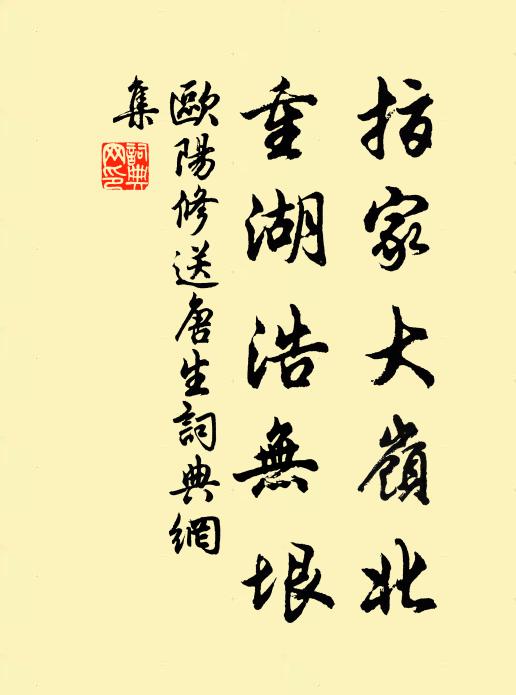 指家大嶺北
重湖浩無垠
歐陽修送唐生詞典網
集
詞典網印